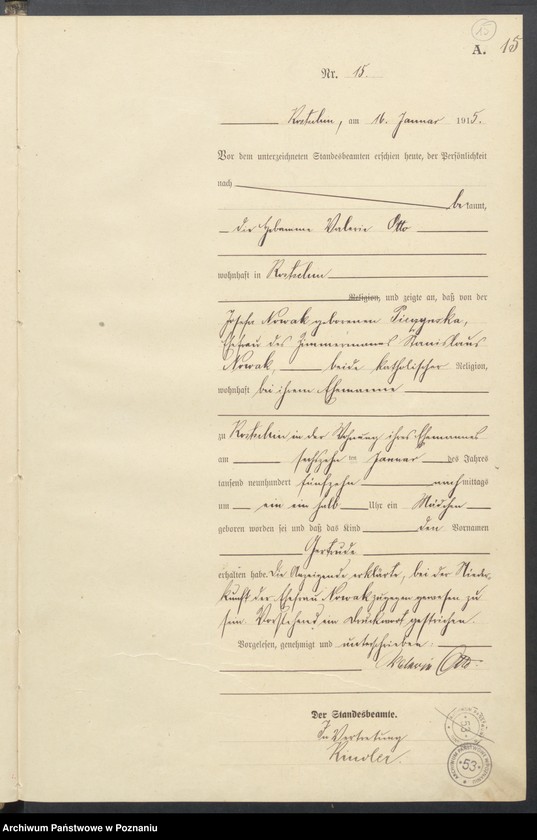 15
A. 15
Nr. 15.
Kostschin, am 16. Januar 1915.
Vor dem unterzeichneten Standesbeamten erschien heute, der Persönlichkeit
nach
bekannt,
die Hebamme Valerie Otto
wohnhaft in Kostschin
Religion, und zeigte an, daß von der
Josefa Nowak geborenen
Ehefrau des Zimmermanns Stanislaus
Nowak, beide katholischer Religion,
wohnhaft bei ihrem Ehemanne
zu Kostschin in der Wohnung ihres Ehemannes
am sechzehn ten Januar des Jahres
tausend neunhundert fünfzehn nachmittags
um ein ein halb Uhr ein Mädchen
geboren worden sei und daß das Kind den Vornamen
Gertrude
erhalten habe. Die Anzeigende erklärte, bei der Nieder-
kunft der Ehefrau Nowak zugegen gewesen zu
sein. Vorstehend ein Druckwort gestrichen.
Vorgelesen, genehmigt und unterschrieben:
Valerie Otto.
Der Standesbeamte.
In Vertretung
53
Archiwum Państwowe w Poznaniu